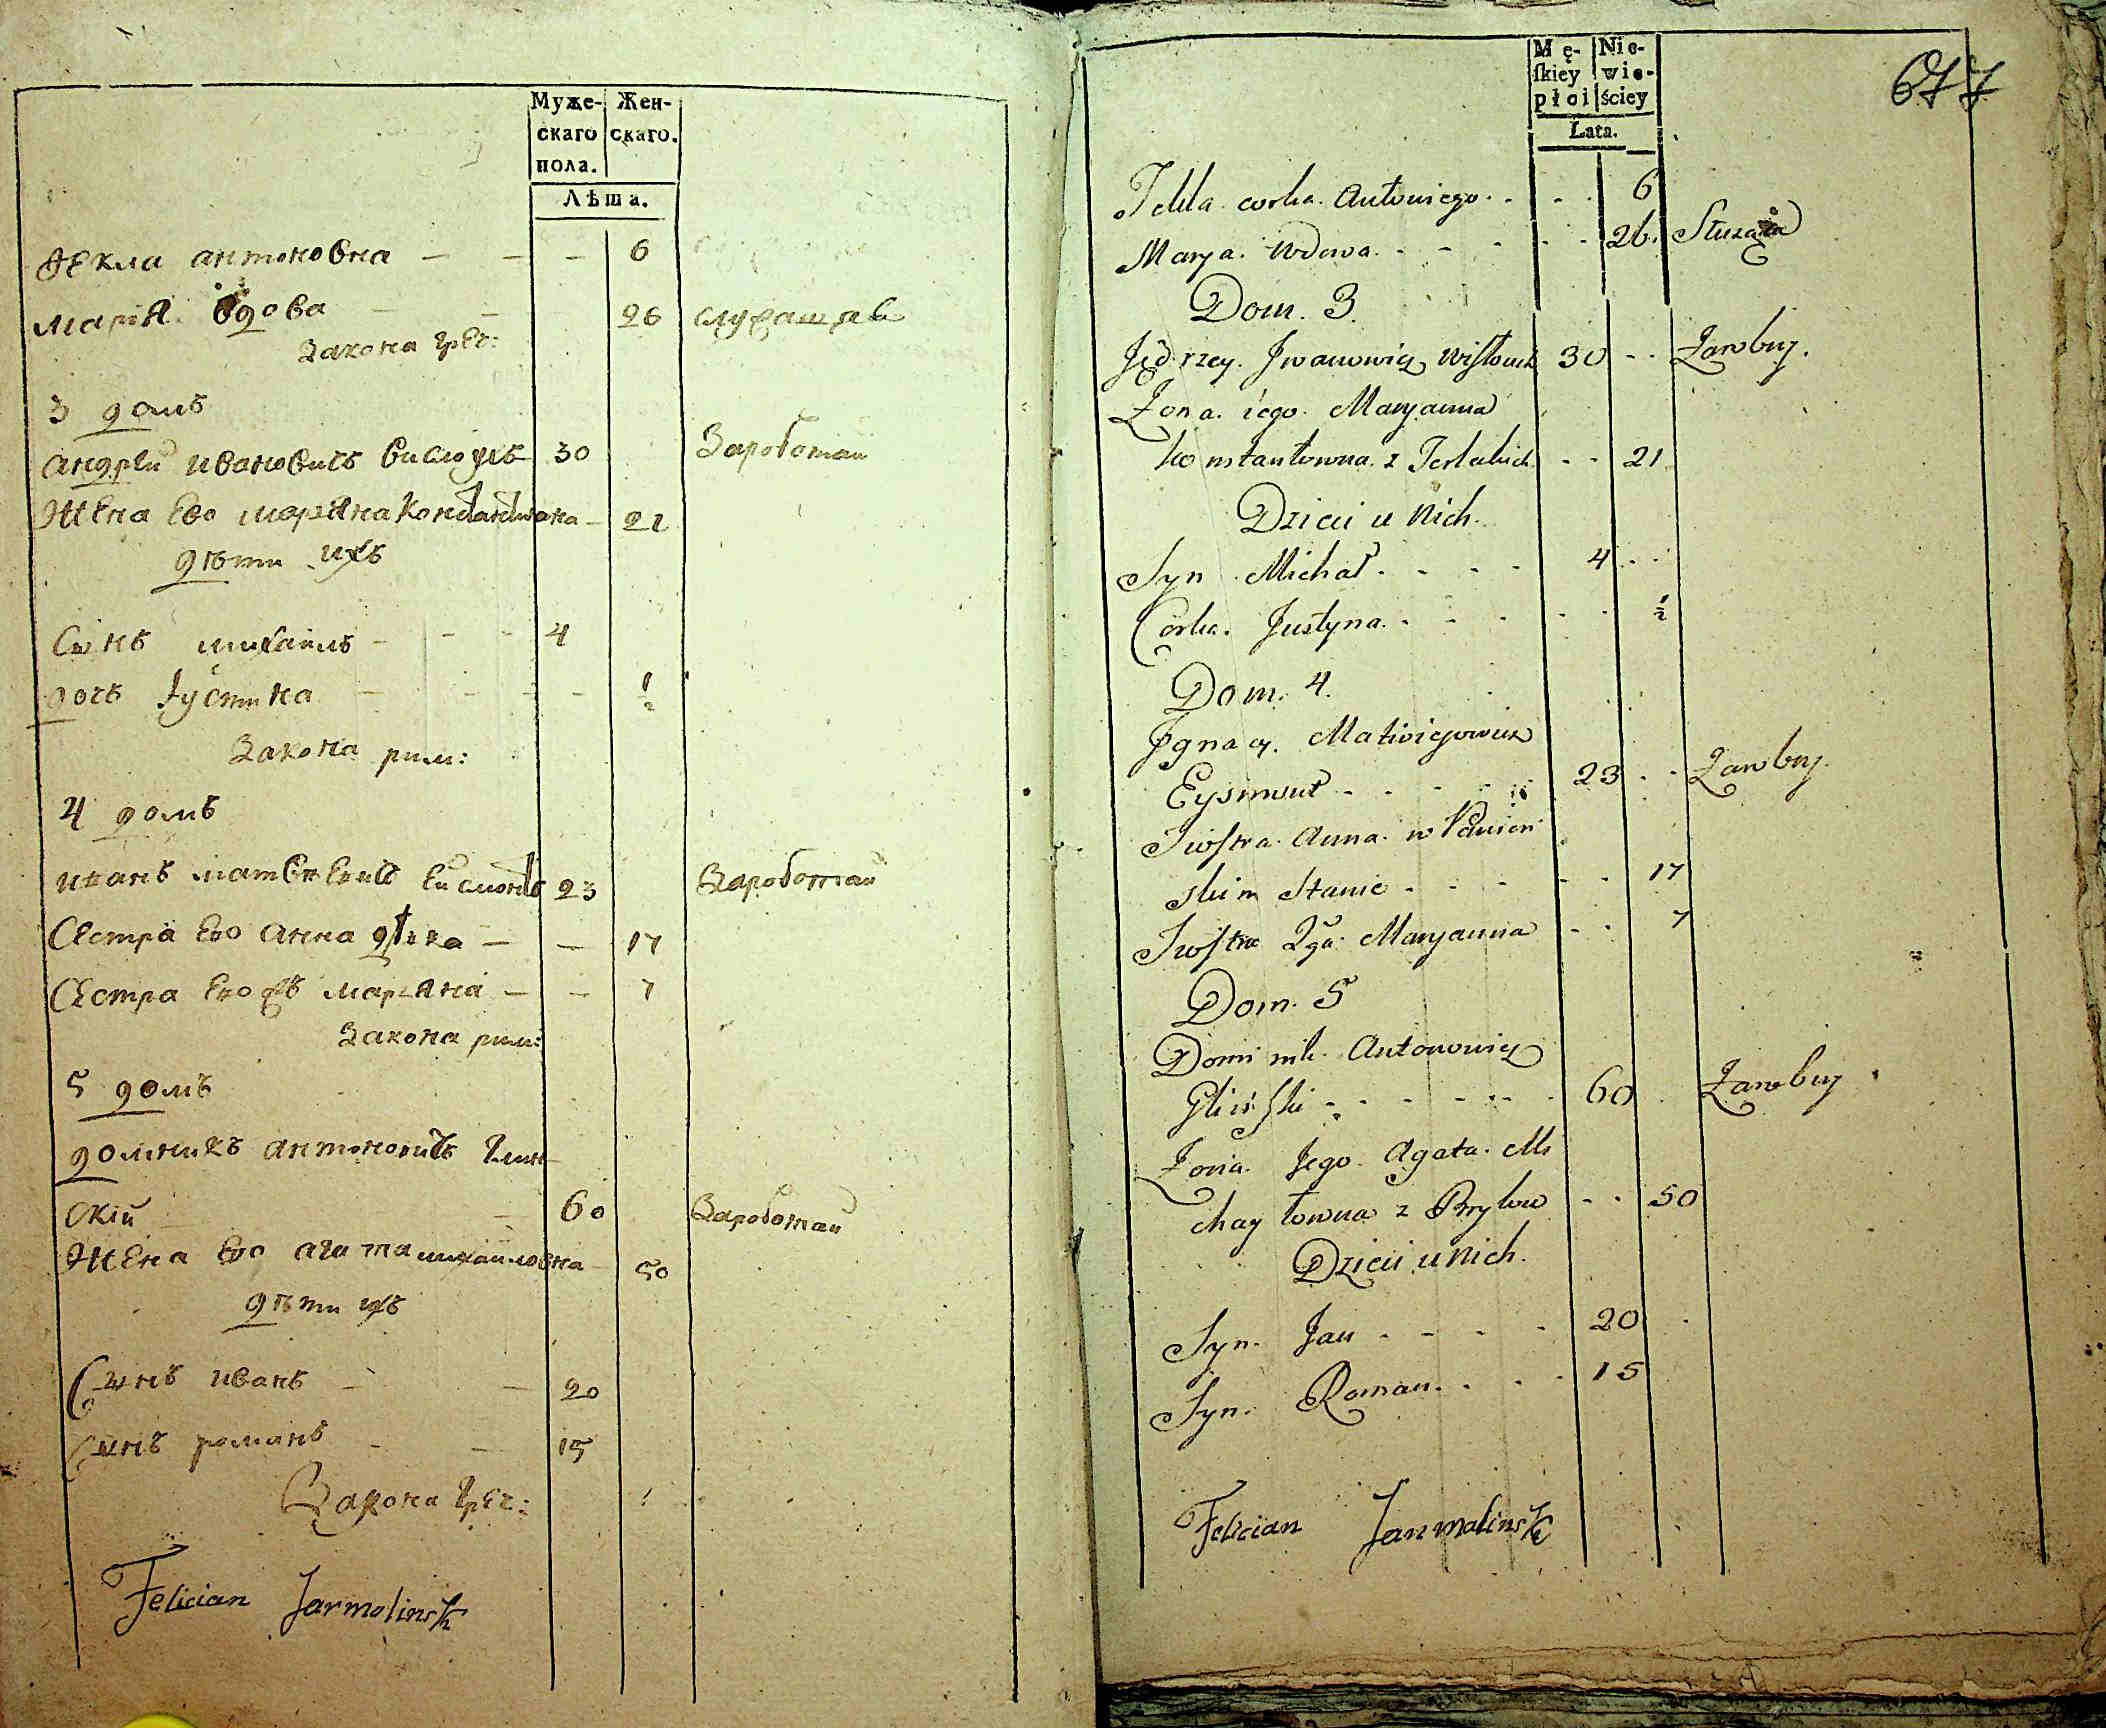 Муже-
скаго
пола.
Жен-
скаго.
Лѣта.
Текла антоновна — — — 6
Марія Вдова — — 26 служащая
Закона греч:
3 домъ
Андрей ивановичъ вислоухъ 30 Зароботай
Жена Ево маряна Константовна — 21
дѣти ихъ
Синъ михаилъ — — — 4
дочь Іустина — — — — ½
Закона рим:
4 домъ
Матвеевичъ Еисмонтъ 23 Зароботай
Сестра Ево Анна дѣвка — — 17
Сестра Ево маряна — — 7
Закона рим:
5 домъ
доминикъ антоновичъ Глин
скій — 60 Зароботай
Жена Ево агата михайловна — 50
дѣти ихъ
Синъ иванъ — — 20
Синъ романъ — — 15
Закона греч:
Felician Jarmolinski
677
Mę-
ſkiey
płci
Nie-
wie-
ściey
Lata.
Tekla corka Antoniego . . . . 6
Marya Wdowa . . . . . . 26 Służąca
Dom. 3.
Jędrzey Jwanowicz Wisłouch 30 . . Zarobny.
Zona iego Maryanna
Konstantowna z Terleckich . . 21
Dzieci u Nich.
Syn Michał . . . . 4 . .
Corka Justyna . . . . . . ½
Dom. 4.
Jgnacy Matwiejewicz
Eysmont . . . . . 23 . . Zarobny.
Siostra Anna w Panień
skim Stanie . . . . . . 17
Siostra 2ga Maryanna . . 7
Dom. 5
Dominik Antonowicz
Gliński . . . . . . 60 Zarobny
Zona Jego Agata Mi
chayłowna z . . 50
Dzieci u Nich.
Syn. Jan . . . . 20 .
Syn. Roman . . . . 15
Felician Jarmolinski